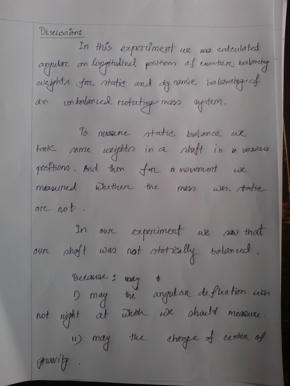 Discussions
In this experiment we was calculated
angular on longitudinal positions of counter balancing
weights for static and dynamic balancing of
an unbalanced rotating mass system.
To measure static balance we
took some weights in a shaft in a various
positions. And then for a movement we
measured whether the mass was static
are not.
In our experiment we saw that
our shaft was not statically balanced.
Because : may
i) may the angular deflection was
not right at which we should measure
ii) may the change of center of
gravity.